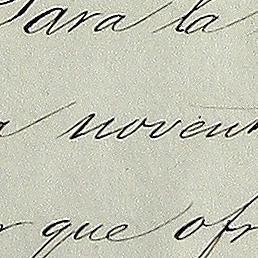 Para la
noven
que ofr